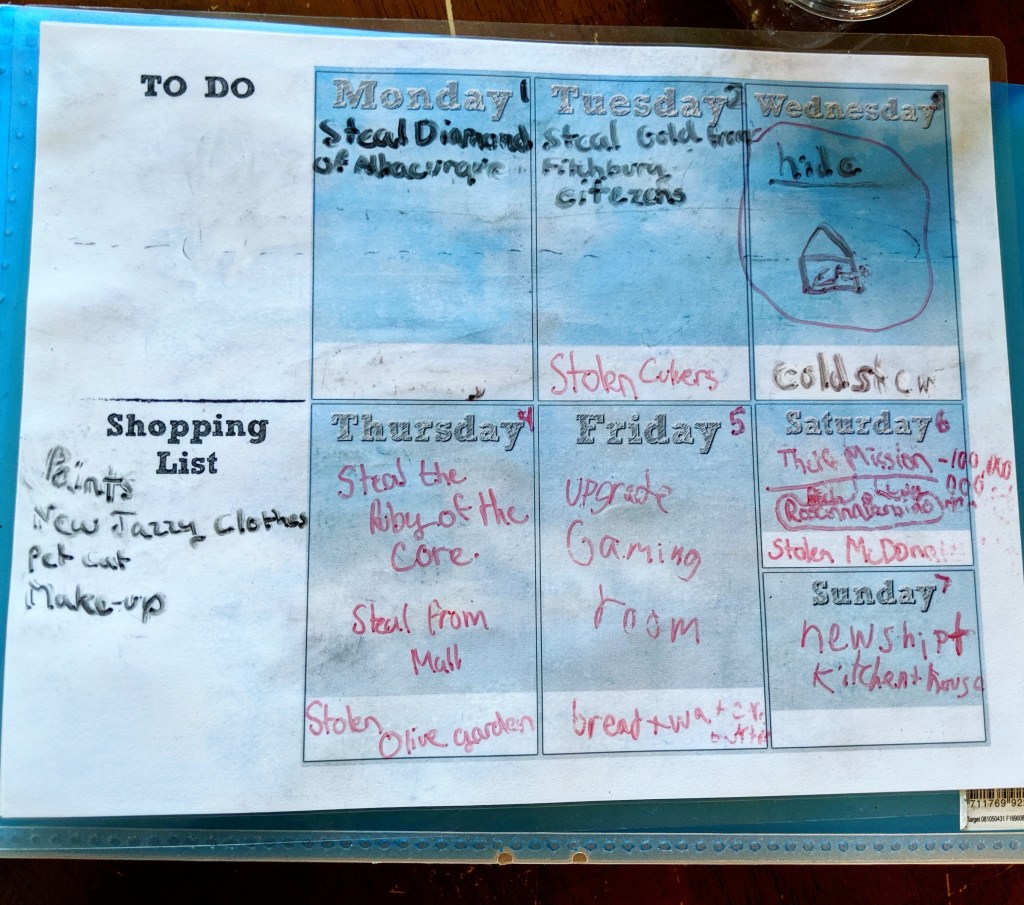 TO DO
Monday 1
Steal Diamond
of Albacurque
Tuesday 2
Steal Gold from
Fitchburg
citezens
Stolen Culvers
Wednesday 3
hide
cold stew
Shopping
List
Paints
New Jazzy Clothes
Pet cat
Make-up
Thursday 4
Steal the
Ruby of the
Core.
Steal from
Mall
Stolen
Olive garden
Friday 5
upgrade
Gaming
room
bread + water
Saturday 6
Theif Mission -100,000
000
Stolen McDonal
Sunday 7
new ship +
Kitchen + house
711769 92
Target